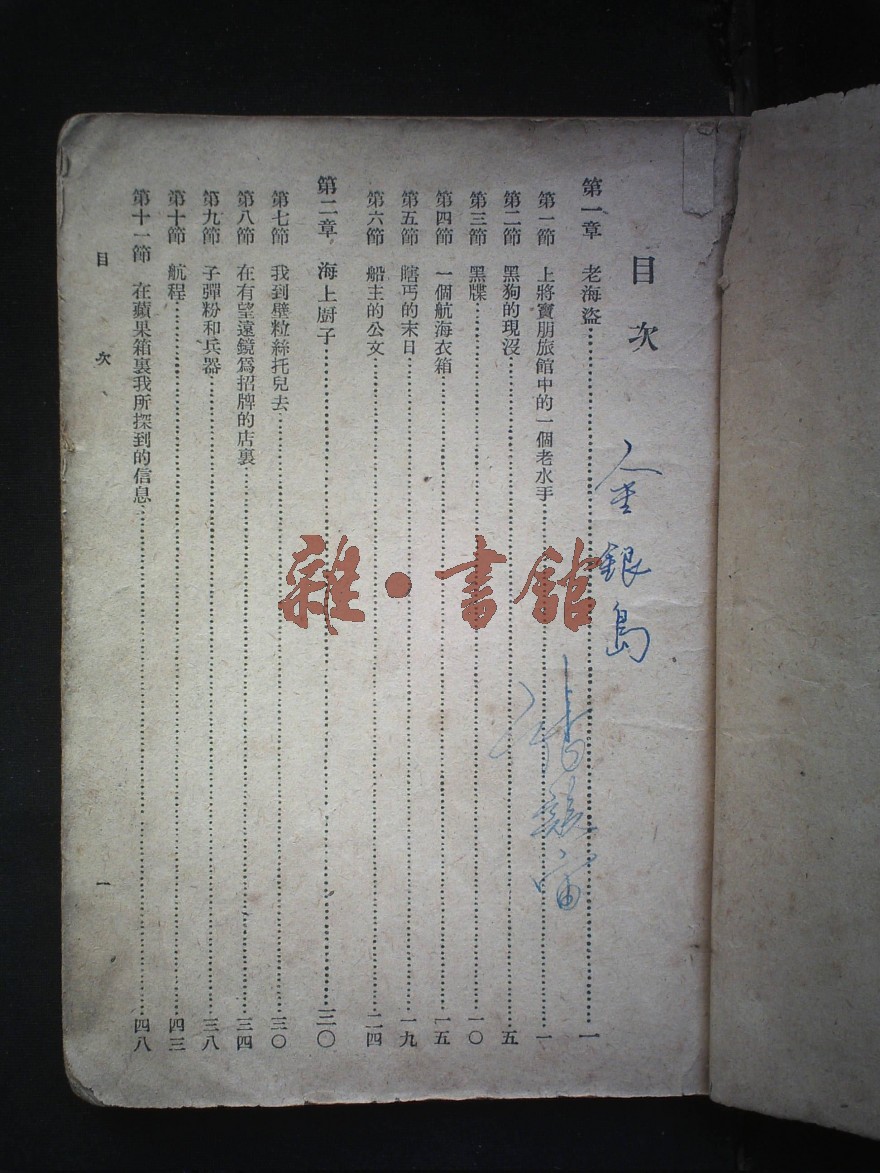 目次
金銀島
第一章　老海盜……一
第一節　上將寶朋旅館中的一個老水手……一
第二節　黑狗的現沒……五
第三節　黑牒……一〇
第四節　一個航海衣箱……一五
第五節　瞎丐的末日……一九
第六節　船主的公文……二四
第二章　海上廚子……三〇
第七節　我到壁粒絲托兒去……三〇
第八節　在有望遠鏡爲招牌的店裏……三四
第九節　子彈粉和兵器……三八
第十節　航程……四三
第十一節　在蘋果箱裏我所探到的信息……四八
目次　一
雜·書館